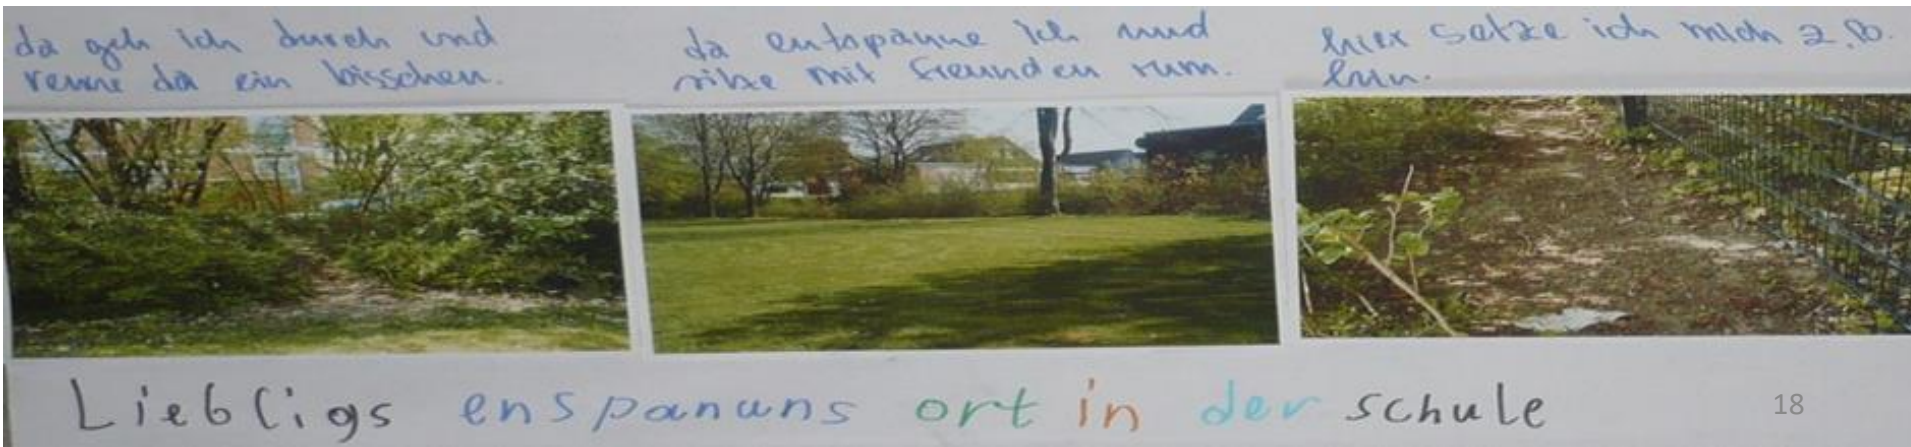 da geh ich durch und
renne da ein bisschen.
da entspanne ich und
sitze mit freunden rum.
hier setze ich mich z.B.
hin.
Liebligs enspanuns ort in der schule
18